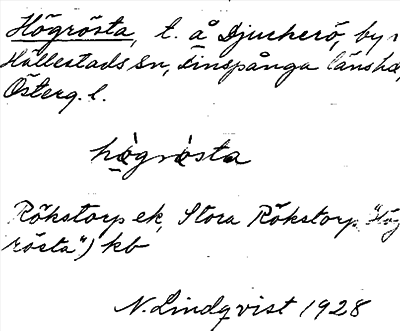 Högrösta, t. å Djurkerö, by i
Hällestads sn, Finspånga länshd,
Österg. l.
högrösta
Rökstorp ek, Stora Rökstorp "Hög
rösta") kb
N. Lindqvist 1928